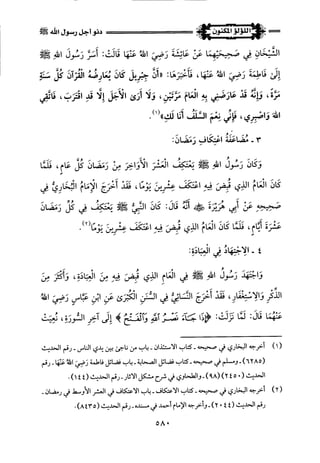 اللؤلؤ المكنون
دنو أجل رسول الله ﷺ
الشَّيْخَانِ فِي صَحِيحَيْهِمَا عَنْ عَائِشَةَ رَضِيَ اللهُ عَنْهَا قَالَتْ: أَسَرَّ رَسُولُ اللهِ ﷺ
إِلَى فَاطِمَةَ رَضِيَ اللهُ عَنْهَا، فَأَخْبَرَهَا: «أَنَّ جِبْرِيلَ كَانَ يُعَارِضُهُ الْقُرْآنَ كُلَّ سَنَةٍ
مَرَّةً، وَإِنَّهُ قَدْ عَارَضَنِي بِهِ الْعَامَ مَرَّتَيْنِ، وَلَا أَرَى الْأَجَلَ إِلَّا قَدِ اقْتَرَبَ، فَاتَّقِي
اللهَ وَاصْبِرِي، فَإِنِّي نِعْمَ السَّلَفُ أَنَا لَكِ»(١).
٣ - مُضَاعَفَةُ اعْتِكَافِ رَمَضَانَ:
وَكَانَ رَسُولُ اللهِ ﷺ يَعْتَكِفُ الْعَشْرَ الْأَوَاخِرَ مِنْ رَمَضَانَ كُلَّ عَامٍ، فَلَمَّا
كَانَ الْعَامُ الَّذِي قُبِضَ فِيهِ اعْتَكَفَ عِشْرِينَ يَوْمًا، فَقَدْ أَخْرَجَ الْإِمَامُ الْبُخَارِيُّ فِي
صَحِيحِهِ عَنْ أَبِي هُرَيْرَةَ ﷺ أَنَّهُ قَالَ: كَانَ النَّبِيُّ ﷺ يَعْتَكِفُ فِي كُلِّ رَمَضَانَ
عَشَرَةَ أَيَّامٍ، فَلَمَّا كَانَ الْعَامُ الَّذِي قُبِضَ فِيهِ اعْتَكَفَ عِشْرِينَ يَوْمًا(٢).
٤ - الِاجْتِهَادُ فِي الْعِبَادَةِ:
وَاجْتَهَدَ رَسُولُ اللهِ ﷺ فِي الْعَامِ الَّذِي قُبِضَ فِيهِ مِنَ الْعِبَادَةِ، وَأَكْثَرَ مِنَ
الذِّكْرِ وَالِاسْتِغْفَارِ، فَقَدْ أَخْرَجَ النَّسَائِيُّ فِي السُّنَنِ الْكُبْرَى عَنِ ابْنِ عَبَّاسٍ رَضِيَ اللهُ
عَنْهُمَا قَالَ: لَمَّا نَزَلَتْ: ﴿إِذَا جَاءَ نَصْرُ اللهِ وَالْفَتْحُ﴾ إِلَى آخِرِ السُّورَةِ، نُعِيَتْ
(١) أخرجه البخاري في صحيحه - كتاب الاستئذان - باب من ناجى بين يدي الناس - رقم الحديث
(٦٢٨٥) - ومسلم في صحيحه - كتاب فضائل الصحابة - باب فضائل فاطمة رضي الله عنها - رقم
الحديث (٢٤٥٠) (٩٨) - والطحاوي في شرح مشكل الآثار - رقم الحديث (١٤٤).
(٢) أخرجه البخاري في صحيحه - كتاب الاعتكاف - باب الاعتكاف في العشر الأوسط في رمضان -
رقم الحديث (٢٠٤٤) - وأخرجه الإمام أحمد في مسنده - رقم الحديث (٨٤٣٥).
٥٨٠